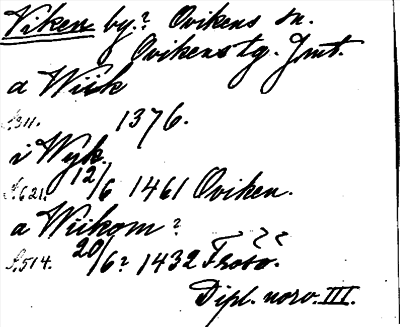 Viken by? Ovikens sn.
Ovikens tg. Jmt.
a Wiik
S.311. 1376.
i Wyk.
S.621. 12/6 1461 Oviken.
a Wiikom?
S.514. 20/6? 1432 Frösö.
Dipl. norv. III.